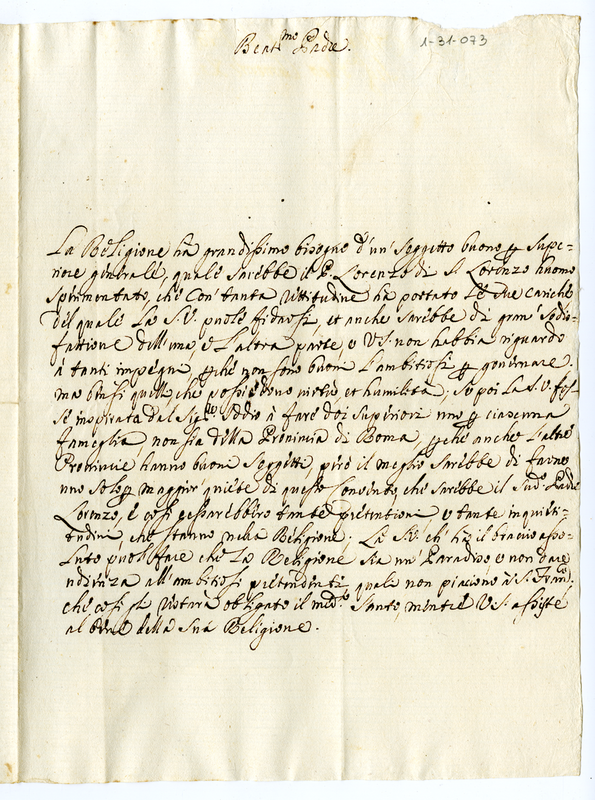 Beat.mo Padre.
1-31-073
La Religione hà grandissimo bisogno d'un' Soggetto buono per Supe=
riore generale, quale sarebbe il P. Lorenzo di S. Lorenzo huomo
sperimentato, che con' tanta rettitudine ha portato le sue cariche
del quale La S.V. puole fidarsi, et anche sarebbe di gran' sodis=
fatione dell'una, e l'altra parte, e V.S. non habbia riguardo
à tanti impegni, perche non sono buoni l'ambitiosi per governare.
ma bensi quelli che possiedono virtù et humiltà; Se poi La S.V. fos=
se inspirata dal Sig.re Iddio à fare doi Superiori uno per ciascuna
fameglia, non sia della Provincia di Roma, perche anche l'altre
Provincie hanno buoni Soggetti, però il meglio sarebbe di farne
uno solo per maggior' quiete di questo Convento, che sarebbe il Sud.o Padre
Lorenzo, e così cessarebbero tante pretentioni e tante inquieti=
tudini, che stanno nella Religione. La S.V. ch' hà il braccio asso=
luto puol fare che la Religione sia un' Paradiso e non dare
udienza all'ambitiosi pretendenti quali non piaciono à S. Fran.co
che così gli restarà obligato il med.o Santo, mentre V.S. assiste
al bene della Sua Religione.